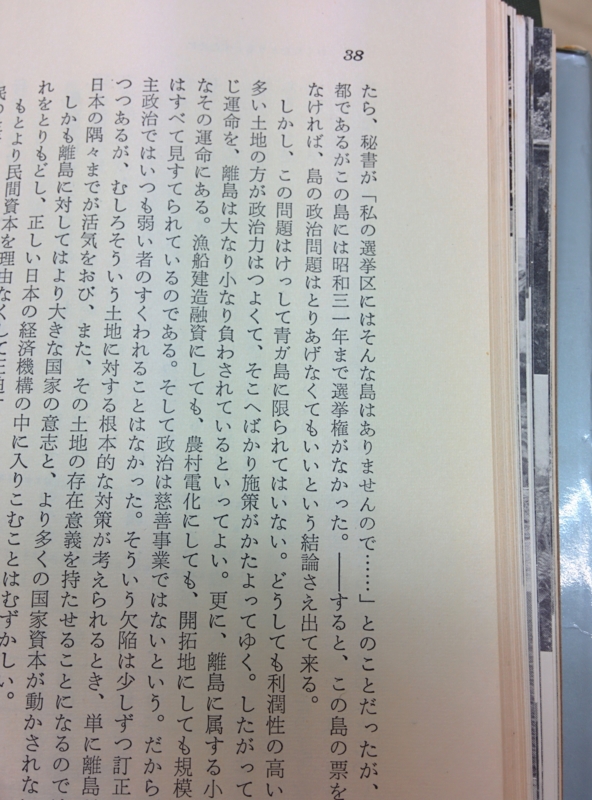 38
たら、秘書が「私の選挙区にはそんな島はありませんので……」とのことだったが、
都であるがこの島には昭和三一年まで選挙権がなかった。――すると、この島の票を
なければ、島の政治問題はとりあげなくてもいいという結論さえ出て来る。
しかし、この問題はけっして青ガ島に限られてはいない。どうしても利潤性の高い
多い土地の方が政治力はつよくて、そこへばかり施策がかたよってゆく。したがって
じ運命を、離島は大なり小なり負わされているといってよい。更に、離島に属する小
なその運命にある。漁船建造融資にしても、農村電化にしても、開拓地にしても規模
はすべて見すてられているのである。そして政治は慈善事業ではないという。だから
主政治ではいつも弱い者のすくわれることはなかった。そういう欠陥は少しずつ訂正
つつあるが、むしろそういう土地に対する根本的な対策が考えられるとき、単に離島
日本の隅々までが活気をおび、また、その土地の存在意義を持たせることになるので
しかも離島に対してはより大きな国家の意志と、より多くの国家資本が動かされな
れをとりもどし、正しい日本の経済機構の中に入りこむことはむずかしい。
もとより民間資本を理由なくして